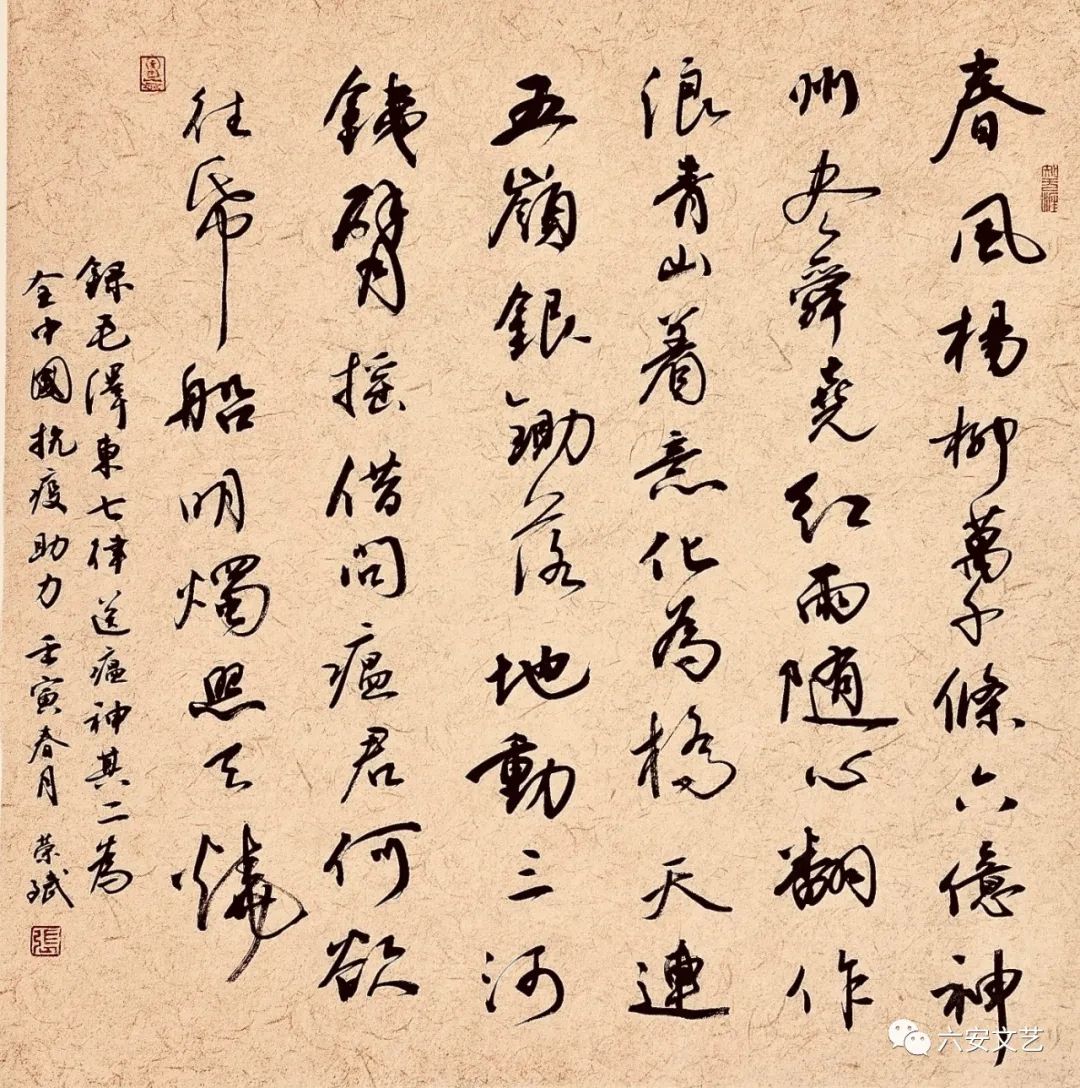 春風楊柳萬千條六億神
州尽舜堯紅雨随心翻作
浪青山着意化為橋天連
五嶺銀鋤落地動三河
鐵臂摇借問瘟君何欲
往帋船明燭照天燒
録毛澤東七律送瘟神其二為
全中國抗疫助力 壬寅春月 荣斌
張
六安文艺